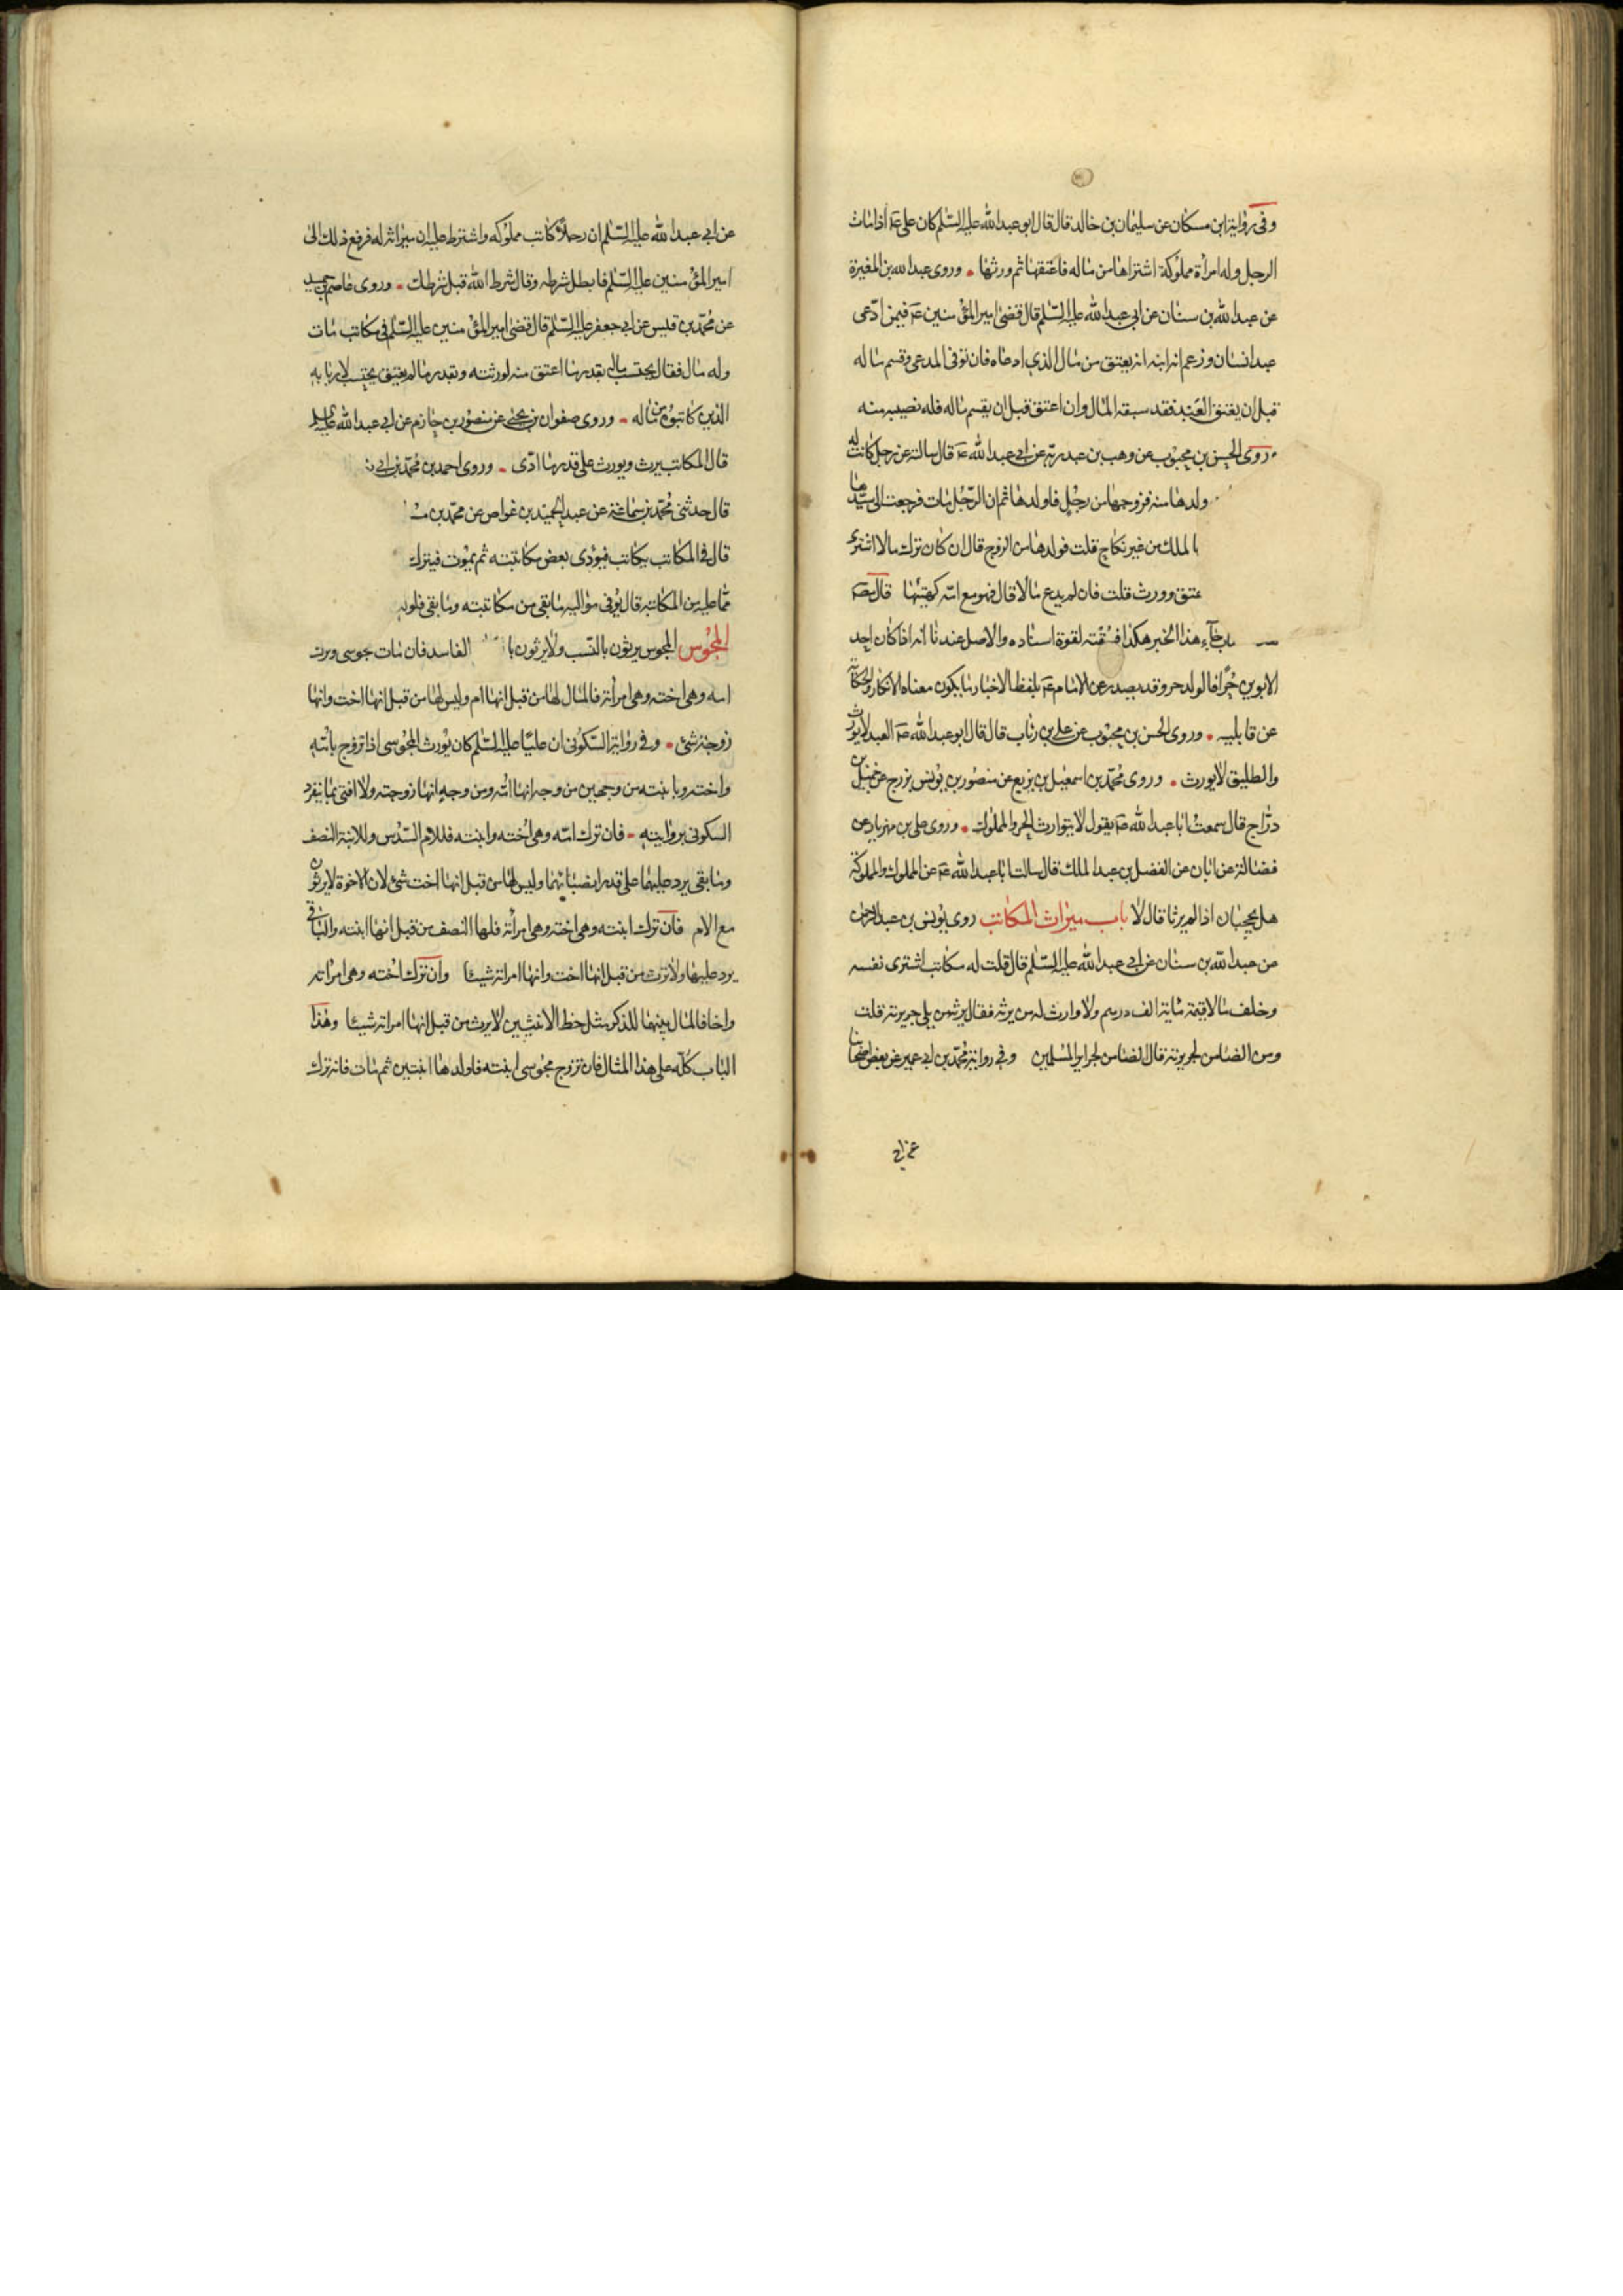 وفى رواية ابن مسكان عن سليمان بن خالد قال قال ابو عبدالله عليه السلم كان على عم اذا مات
الرجل وله امرأة مملوكة اشتراها من ماله فاعتقها ثم ورثها وروى عبدالله بن المغيرة
عن عبدالله بن سنان عن ابى عبدالله عليه السلم قال قضى امير المؤمنين عم فيمن ادعى
عبد انسان وزعم انه ابنه انه يعتق من مال الذي ادعاه فان توفى المدعى وقسم ماله
قبل ان يعتق العبد فقد سبقه المال وان اعتق قبل ان يقسم ماله فله نصيبه منه
روى الحسن بن محبوب عن وهب بن عبد ربه عن ابى عبدالله عم قال سالته عن رجل كانت له
ولدها منه فزوجها من رجل فاولدها ثم ان الرجل مات فرجعت الى سيدها
الملك من غير نكاح قلت فولدها من الزوج قال ان كان ترك مالا اشترى
عتق وورث قلت فان لم يدع مالا قال فهو مع امه كهيئتها قال
جاء هذا الخبر هكذا فسقته لقوة اسناده والاصل عندنا انه اذا كان احد
الابوين حرا فالولد حر وقد يصدر عن الامام عم بلفظ الاخبار ما يكون معناه الانكار والحكاية
عن قابليه وروى الحسن بن محبوب عن على بن رئاب قال قال ابو عبدالله عم العبد لا يورث
والطليق لا يورث وروى محمد بن اسمعيل بن بزيع عن منصور بن يونس بزرج عن جميل بن
دراج قال سمعت ابا عبدالله عم يقول لا يتوارث الحر والمملوك وروى على بن مهزيار عن
فضالة عن ابان عن الفضل بن عبد الملك قال سالت ابا عبدالله عم عن المملوك والمملوكة
هل يحجبان اذا لم يرثا قال لا باب ميراث المكاتب روى يونس بن عبد الرحمن
عن عبدالله بن سنان عن ابى عبدالله عليه السلم قال قلت له مكاتب اشترى نفسه
وخلف مالا قيمته مائة الف درهم ولا وارث له من يرثه فقال يرثه من يلى جريرته قلت
ومن الضامن لجريرته قال الضامن لجراير المسلمين وفى رواية محمد بن ابى عمير عن بعض اصحابنا
عن ابى عبدالله عليه السلم ان رجلا كاتب مملوكه واشترط عليه ان ميراثه له فرفع ذلك الى
امير المؤمنين عليه السلم فابطل شرطه وقال شرط الله قبل شرطك وروى عاصم بن حميد
عن محمد بن قيس عن ابى جعفر عليه السلم قال قضى امير المؤمنين عليه السلم فى مكاتب مات
وله مال فقال يحتسب ماله بقدر ما اعتق منه لورثته وبقدر ما لم يعتق يحتسب لاربابه
الذين كاتبوه من ماله وروى صفوان بن يحيى عن منصور بن حازم عن ابى عبدالله عليه السلم
قال المكاتب يرث ويورث على قدر ما ادى وروى احمد بن محمد بن ابى
قال حدثنى محمد بن سماعة عن عبد الحميد بن غواص عن محمد بن
قال فى المكاتب يكاتب فيؤدى بعض مكاتبته ثم يموت فيترك
مما عليه من المكاتبة قال يوفى مواليه ما بقى من مكاتبته وما بقى فلولده
المجوس المجوس يرثون بالنسب ولا يرثون با الفاسد فان مات مجوسى وترك
امه وهى اخته وهى امرأته فالمال لها من قبل انها ام وليس لها من قبل انها اخت وانها
زوجة شئ وفى رواية السكونى ان عليا عليه السلم كان يورث المجوسى اذا تزوج بامه
واخته وبابنته من وجهين من وجه انها امه ومن وجه انها زوجته ولا افتى بما ينفرد
السكونى بروايته فان ترك امه وهى اخته وابنته فللام السدس وللابنة النصف
وما بقى يرد عليهما على قدر انصبائهما وليس لها من قبل انها اخت شئ لان الاخوة لا يرثون
مع الام فان ترك ابنته وهى اخته وهى امرأته فلها النصف من قبل انها ابنته والباقى
يرد عليها ولا ترث من قبل انها اخت وانها امراته شيئا وان ترك اخته وهى امراته
واخا فالمال بينهما للذكر مثل حظ الانثيين لا يرث من قبل انها امراته شيئا وهذا
الباب كله على هذا المثال فان تزوج مجوسى ابنته فاولدها ابنتين ثم مات فانه ترك